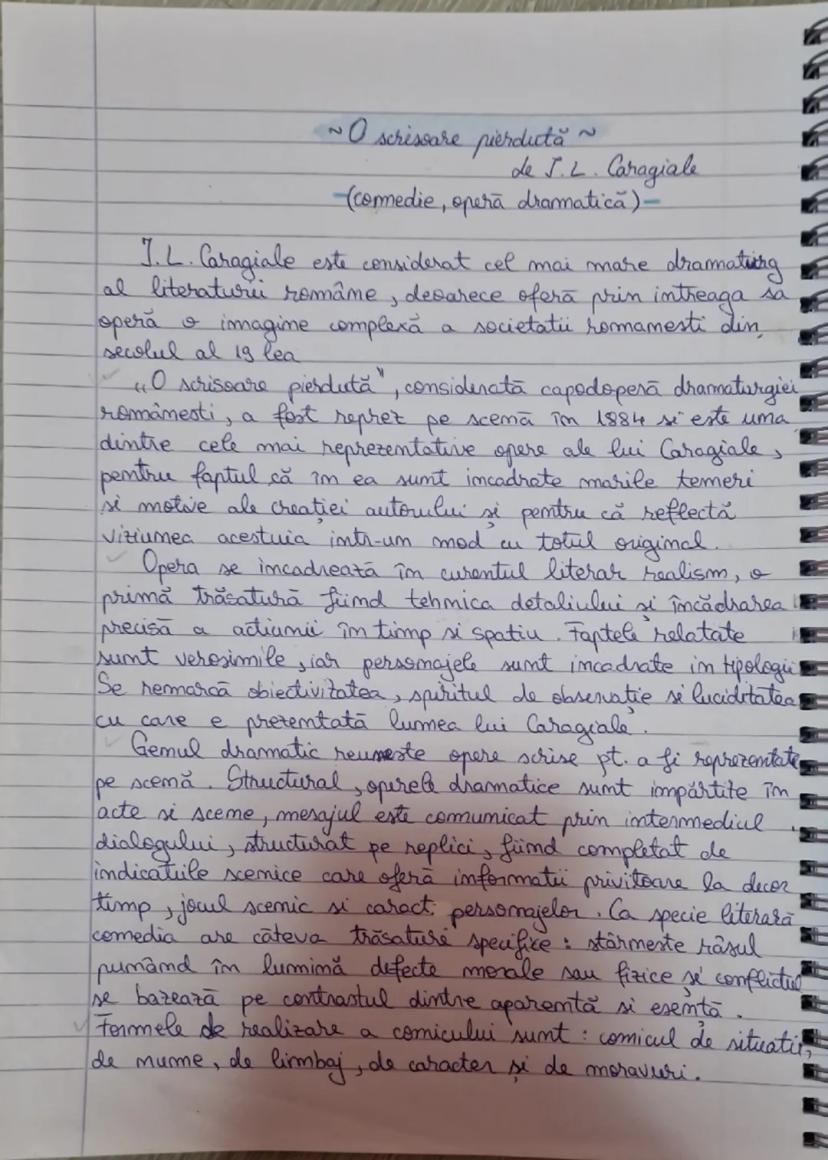 ~ O scrisoare pierdută ~
de I. L. Caragiale
-(comedie, operă dramatică)-
I. L. Caragiale este considerat cel mai mare dramaturg
al literaturii române, deoarece oferă prin intreaga sa
operă o imagine complexă a societatii romanesti din
secolul al 19 lea
"O scrisoare pierdută", considerată capodoperă dramaturgiei
românesti, a fost reprez pe scenă în 1884 si este una
dintre cele mai reprezentative opere ale lui Caragiale,
pentru faptul că în ea sunt incadrate marile temeri
si motive ale creației autorului și pentru că reflectă
viziunea acestuia intr-un mod cu totul original.
Opera se incadrează în curentul literar realism, o
primă trăsatură fiind tehnica detaliului și încădrarea
precisă a actiunii în timp si spatiu. Faptele relatate
sunt verosimile, iar personajele sunt incadrate in tipologii
Se remarcă obiectivitatea, spiritul de observație si luciditatea
cu care e prezentată lumea lui Caragiale.
Genul dramatic reuneste opere scrise pt. a fi reprezentate
pe scenă. Structural, operele dramatice sunt impărtite în
acte si scene, mesajul este comunicat prin intermediul
dialogului, structurat pe replici, fiind completat de
indicatiile scenice care oferă informatii privitoare la decor
timp, jocul scenic si caract. personajelor. Ca specie literară
comedia are câteva trăsături specifice: stârneste râsul
punând în lumină defecte morale sau fizice și conflictul
se bazează pe contrastul dintre aparență si esență.
Formele de realizare a comicului sunt: comicul de situatii,
de nume, de limbaj, de caracter și de moravuri.